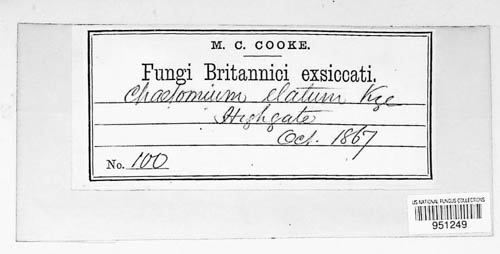 M. C. COOKE.
Fungi Britannici exsiccati.
Chaetomium elatum Kze
Highgate
Oct. 1867
No. 100
US NATIONAL FUNGUS COLLECTIONS
951249